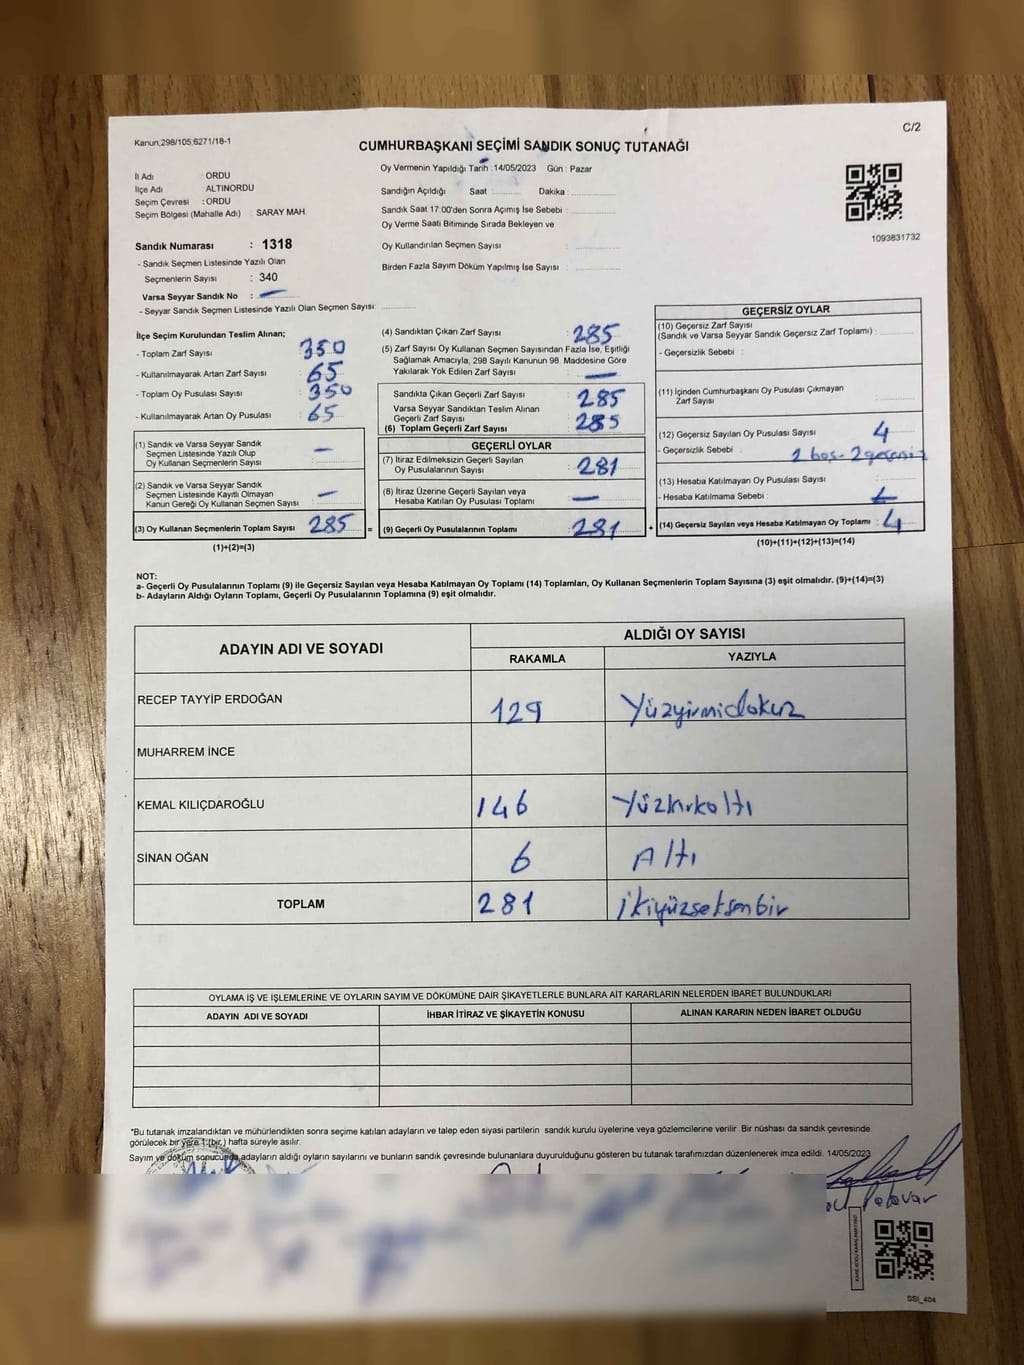 Kanun;298/105;6271/18-1
C/2
CUMHURBAŞKANI SEÇİMİ SANDIK SONUÇ TUTANAĞI
İl Adı : ORDU
İlçe Adı : ALTINORDU
Seçim Çevresi : ORDU
Seçim Bölgesi (Mahalle Adı) : SARAY MAH.
Oy Vermenin Yapıldığı Tarih :14/05/2023 Gün : Pazar
Sandığın Açıldığı Saat : Dakika :
Sandık Saat 17.00'den Sonra Açımış İse Sebebi :
Oy Verme Saati Bitiminde Sırada Bekleyen ve
Oy Kullandırılan Seçmen Sayısı :
Birden Fazla Sayım Döküm Yapılmış İse Sayısı :
1093831732
Sandık Numarası : 1318
- Sandık Seçmen Listesinde Yazılı Olan
Seçmenlerin Sayısı : 340
Varsa Seyyar Sandık No : —
- Seyyar Sandık Seçmen Listesinde Yazılı Olan Seçmen Sayısı:
İlçe Seçim Kurulundan Teslim Alınan;
- Toplam Zarf Sayısı : 350
- Kullanılmayarak Artan Zarf Sayısı : 65
- Toplam Oy Pusulası Sayısı : 350
- Kullanılmayarak Artan Oy Pusulası : 65
(1) Sandık ve Varsa Seyyar Sandık
Seçmen Listesinde Yazılı Olup
Oy Kullanan Seçmenlerin Sayısı : —
(2) Sandık ve Varsa Seyyar Sandık
Seçmen Listesinde Kayıtlı Olmayan
Kanun Gereği Oy Kullanan Seçmen Sayısı : —
(3) Oy Kullanan Seçmenlerin Toplam Sayısı : 285 =
(1)+(2)=(3)
(4) Sandıktan Çıkan Zarf Sayısı : 285
(5) Zarf Sayısı Oy Kullanan Seçmen Sayısından Fazla İse, Eşitliği
Sağlamak Amacıyla, 298 Sayılı Kanunun 98. Maddesine Göre
Yakılarak Yok Edilen Zarf Sayısı : —
Sandıkta Çıkan Geçerli Zarf Sayısı : 285
Varsa Seyyar Sandıktan Teslim Alınan
Geçerli Zarf Sayısı :
(6) Toplam Geçerli Zarf Sayısı : 285
GEÇERLİ OYLAR
(7) İtiraz Edilmeksizin Geçerli Sayılan
Oy Pusulalarının Sayısı : 281
(8) İtiraz Üzerine Geçerli Sayılan veya
Hesaba Katılan Oy Pusulası Toplamı : —
(9) Geçerli Oy Pusulalarının Toplamı : 281 +
GEÇERSİZ OYLAR
(10) Geçersiz Zarf Sayısı
(Sandık ve Varsa Seyyar Sandık Geçersiz Zarf Toplamı) :
- Geçersizlik Sebebi :
(11) İçinden Cumhurbaşkanı Oy Pusulası Çıkmayan
Zarf Sayısı :
(12) Geçersiz Sayılan Oy Pusulası Sayısı : 4
- Geçersizlik Sebebi : 2 boş - 2 geçersiz
(13) Hesaba Katılmayan Oy Pusulası Sayısı :
- Hesaba Katılmama Sebebi :
(14) Geçersiz Sayılan veya Hesaba Katılmayan Oy Toplamı : 4
(10)+(11)+(12)+(13)=(14)
NOT:
a- Geçerli Oy Pusulalarının Toplamı (9) ile Geçersiz Sayılan veya Hesaba Katılmayan Oy Toplamı (14) Toplamları, Oy Kullanan Seçmenlerin Toplam Sayısına (3) eşit olmalıdır. (9)+(14)=(3)
b- Adayların Aldığı Oyların Toplamı, Geçerli Oy Pusulalarının Toplamına (9) eşit olmalıdır.
ADAYIN ADI VE SOYADI
ALDIĞI OY SAYISI
RAKAMLA YAZIYLA
RECEP TAYYİP ERDOĞAN 129 Yüzyirmidokuz
MUHARREM İNCE
KEMAL KILIÇDAROĞLU 146 Yüzkırkaltı
SİNAN OĞAN 6 Altı
TOPLAM 281 ikiyüzseksenbir
OYLAMA İŞ VE İŞLEMLERİNE VE OYLARIN SAYIM VE DÖKÜMÜNE DAİR ŞİKAYETLERLE BUNLARA AİT KARARLARIN NELERDEN İBARET BULUNDUKLARI
ADAYIN ADI VE SOYADI İHBAR İTİRAZ VE ŞİKAYETİN KONUSU ALINAN KARARIN NEDEN İBARET OLDUĞU
*Bu tutanak imzalandıktan ve mühürlendikten sonra seçime katılan adayların ve talep eden siyasi partilerin sandık kurulu üyelerine veya gözlemcilerine verilir. Bir nüshası da sandık çevresinde
görülecek bir yere 1 (bir.) hafta süreyle asılır.
Sayım ve döküm sonucunda adayların aldığı oyların sayılarını ve bunların sandık çevresinde bulunanlara duyurulduğunu gösteren bu tutanak tarafımızdan düzenlenerek imza edildi. 14/05/2023
SSI_404